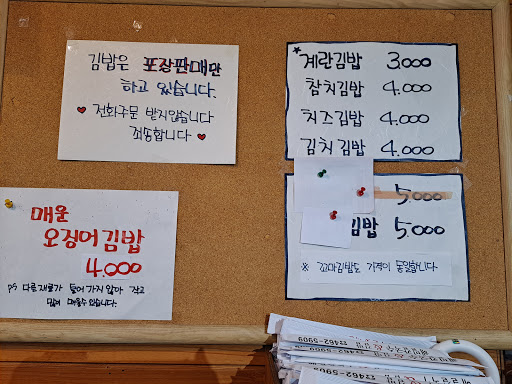 김밥은 포장판매만
하고 있습니다.
♥ 전화주문 받지않습니다 ♥
죄송합니다
★계란김밥 3.000
참치김밥 4.000
치즈김밥 4.000
김치김밥 4.000
5.000
김밥 5.000
※ 꼬마김밥도 가격이 동일합니다
매운
오징어김밥
4.000
PS 다른재료가 들어가지않아 작고
많이 매울수있습니다.
462-5909
462-5909